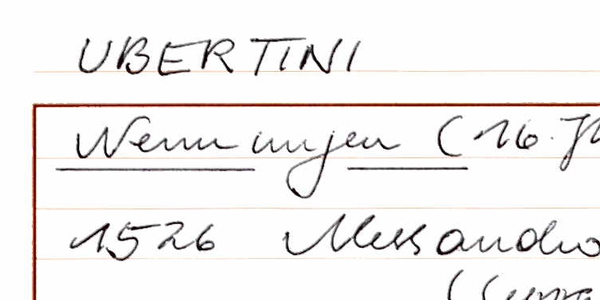 UBERTINI
Nennungen (16. Jh
1526 Alessandro